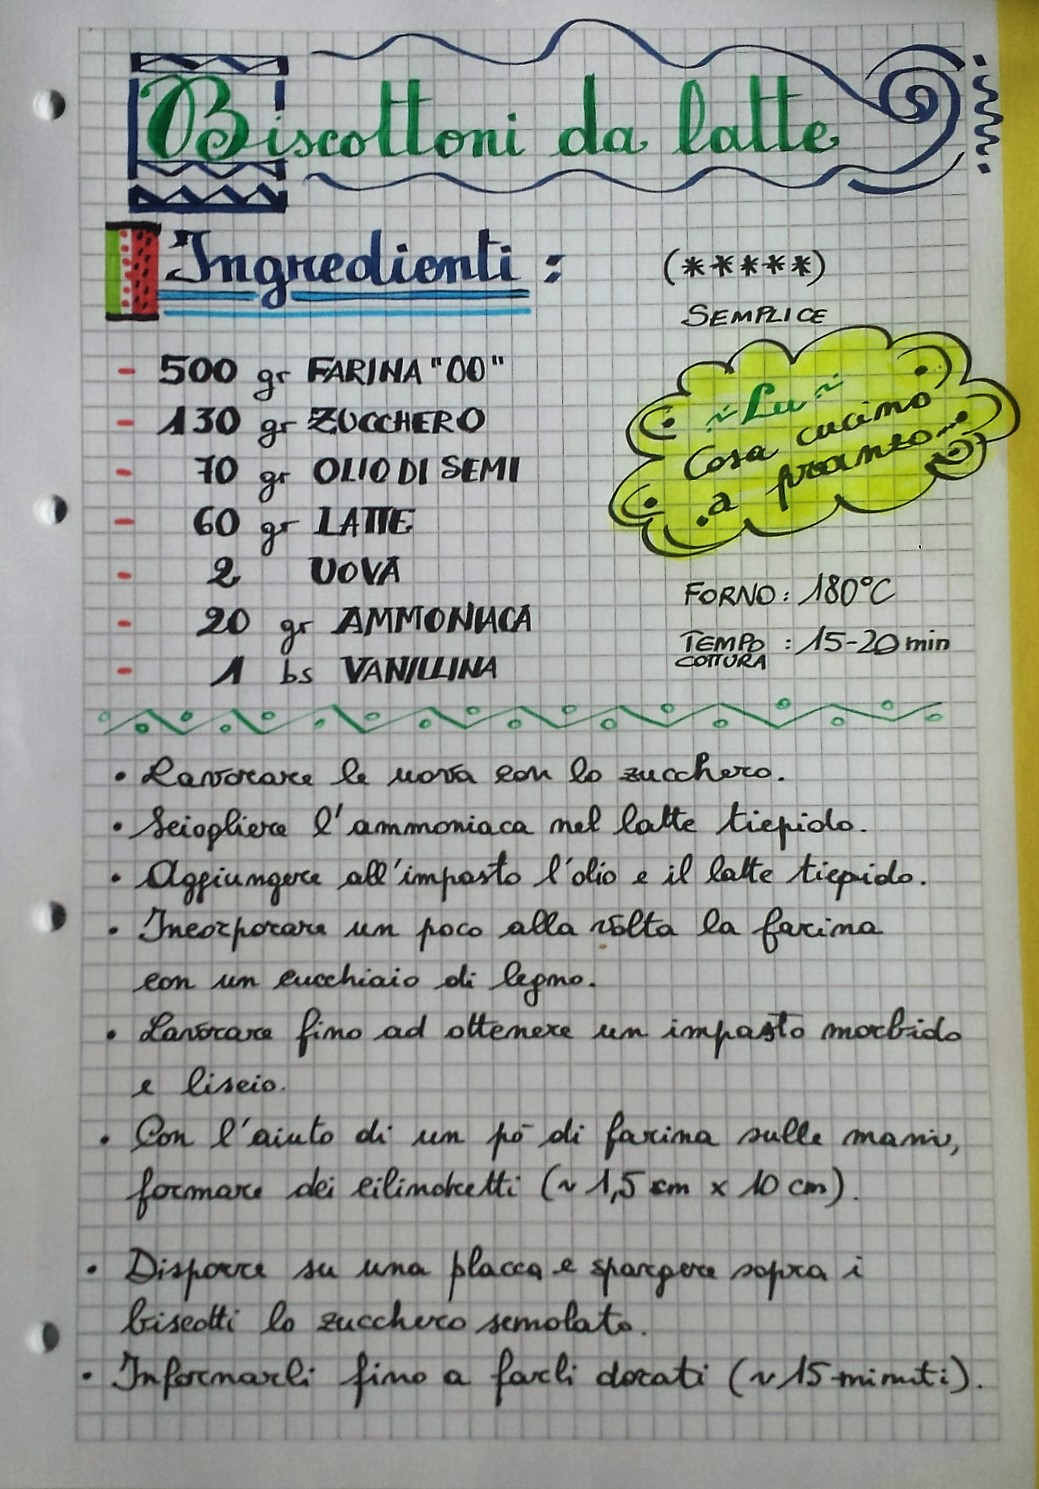 Biscottoni da latte
Ingredienti :
(*****)
SEMPLICE
- 500 gr FARINA "00"
- 130 gr ZUCCHERO
- 70 gr OLIO DI SEMI
- 60 gr LATTE
- 2 UOVA
- 20 gr AMMONIACA
- 1 bs VANILLINA
~ Lu ~
Cosa cucino
a pranzo...
FORNO : 180°C
TEMPO COTTURA : 15-20 min
• Lavorare le uova con lo zucchero.
• Sciogliere l'ammoniaca nel latte tiepido.
• Aggiungere all'impasto l'olio e il latte tiepido.
• Incorporare un poco alla volta la farina
con un cucchiaio di legno.
• Lavorare fino ad ottenere un impasto morbido
e liscio.
• Con l'aiuto di un pò di farina sulle mani,
formare dei cilindretti (~ 1,5 cm x 10 cm).
• Disporre su una placca e spargere sopra i
biscotti lo zucchero semolato.
• Infornarli fino a farli dorati (~ 15 minuti).